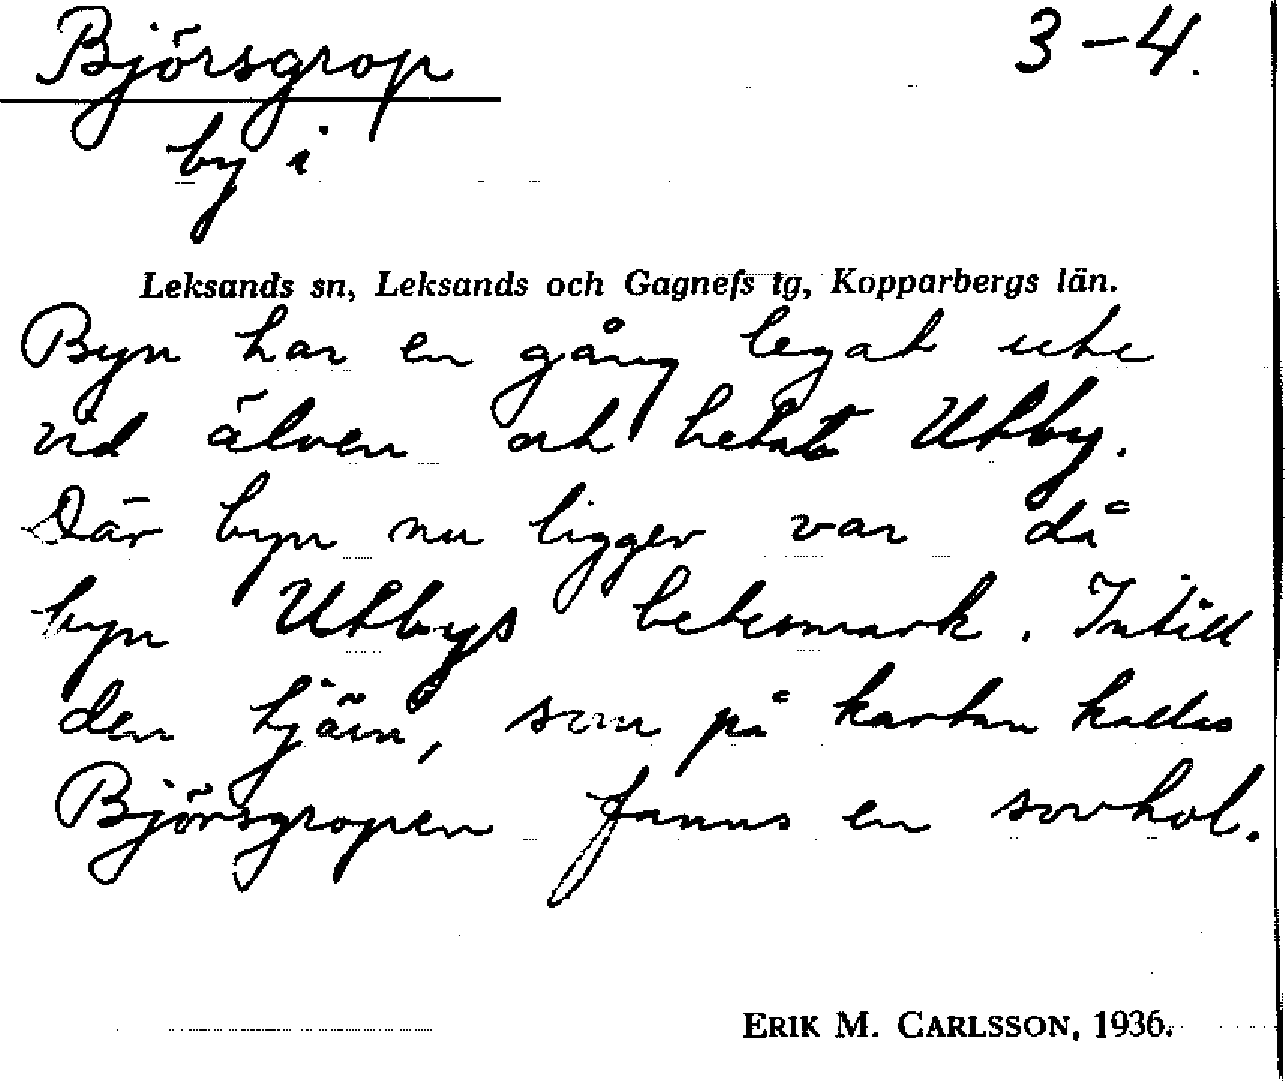 Björsgrop 3-4.
by i
Leksands sn, Leksands och Gagnefs tg, Kopparbergs län.
Byn har en gång legat ute
vid älven och hetat Utby.
Där byn nu ligger var då
byn Utbys betesmark. Intill
den tjärn, som på kartan kallas
Björsgropen fanns en sovhol.
ERIK M. CARLSSON, 1936.